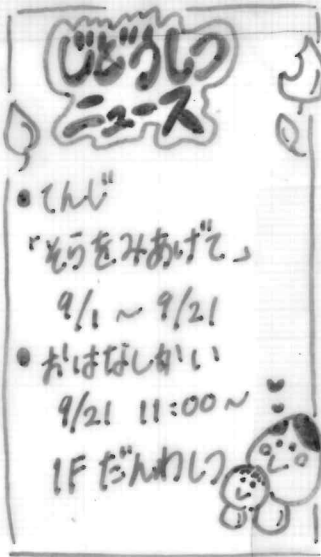 じどうしつ
ニュース
• てんじ
「そらをみあげて」
9/1 ~ 9/21
• おはなしかい
9/21 11:00~
1F だんわしつ